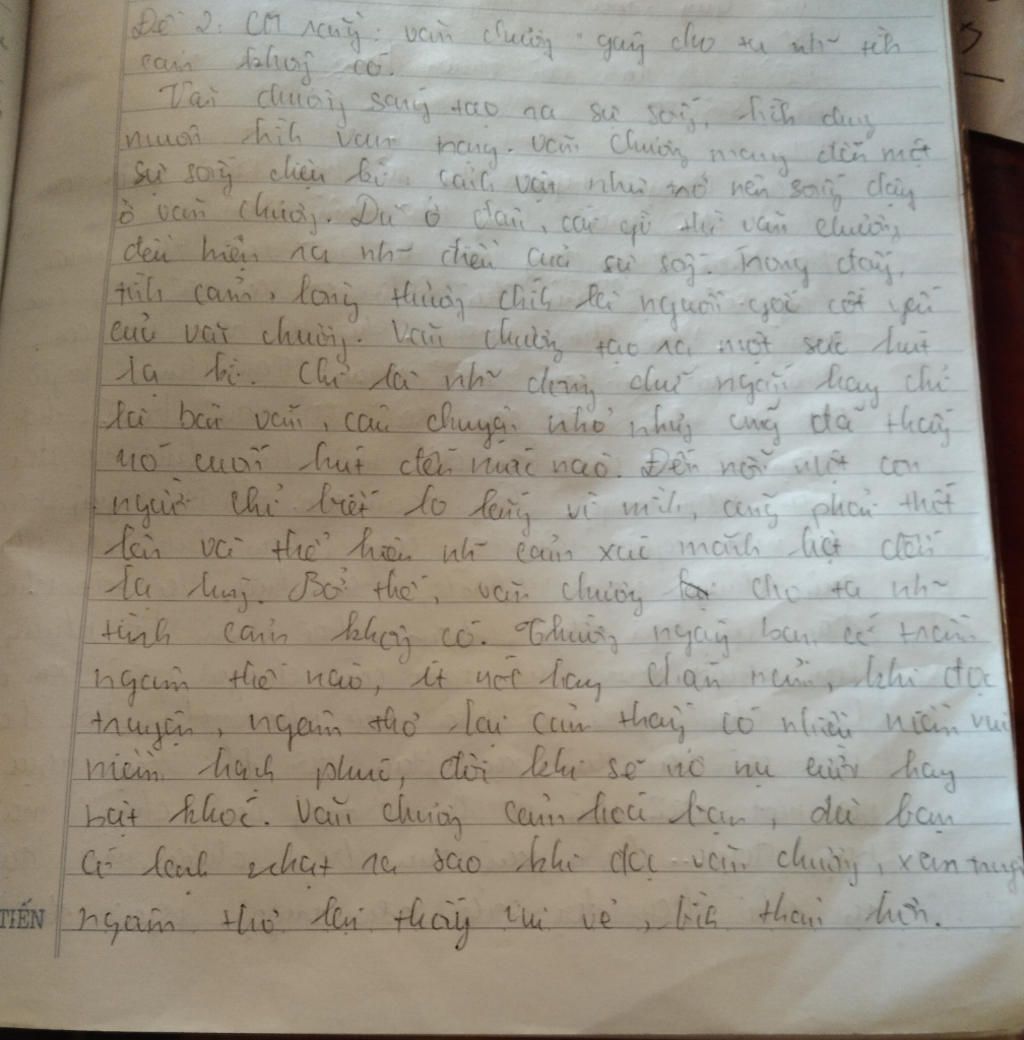 Đề 2: CM rằng: văn chương "gây cho ta nh~ tìh
cảm khôg có.
Văn chươg ság tạo ra sự sốg, hìh dug
muôn hìh vạn trạng. Văn chươg mang đến một
sự sốg diệu kì. Cảnh vật như trở nên sốg dậy
ở văn chươg. Dù ở đâu, cái gì thì văn chươg
đều hiện ra nh~ điều của sự sốg. Trong đấy,
tìh cảm, lòng thươg chíh là nguồn gốc cốt yếu
của văn chươg. Văn chươg tạo ra một sức hút
lạ kì. Chỉ là nh~ dòng chữ ngắn hay chỉ
là bài văn, câu chuyện nhỏ nhưg cũg đã thấy
nó cuốn hút đến mức nào. Đến nỗi một con
người chỉ biết lo lắng vì mìh, cũng phải thốt
lên và thể hiện nh~ cảm xúc mãnh liệt đến
lạ lùg. Bởi thế, văn chươg cho ta nh~
tình cảm khôg có. Thườg ngày bạn có trầm
ngâm thế nào, ít nói hay chán nản, khi đọc
truyện, ngâm thơ lại cảm thấy có nhiều niềm vui
niềm hạnh phúc, đôi khi sẽ nở nụ cười hay
bật khóc. Văn chươg cảm hoá bạn, dù bạn
có lạnh nhạt ra sao khi đọc văn chươg, xem truyện
ngâm thơ lại thấy vui vẻ, bìh thản hơn.
TIẾN